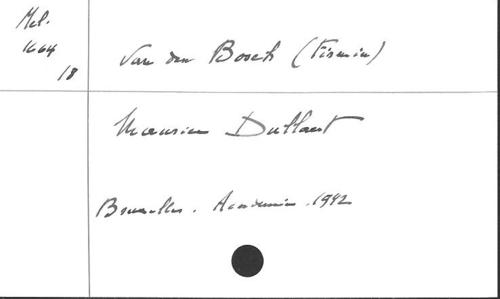 Mel.
1664
18
Van den Bosch (Firmin)
Maurice Dullaert
Bruxelles. Academia. 1942